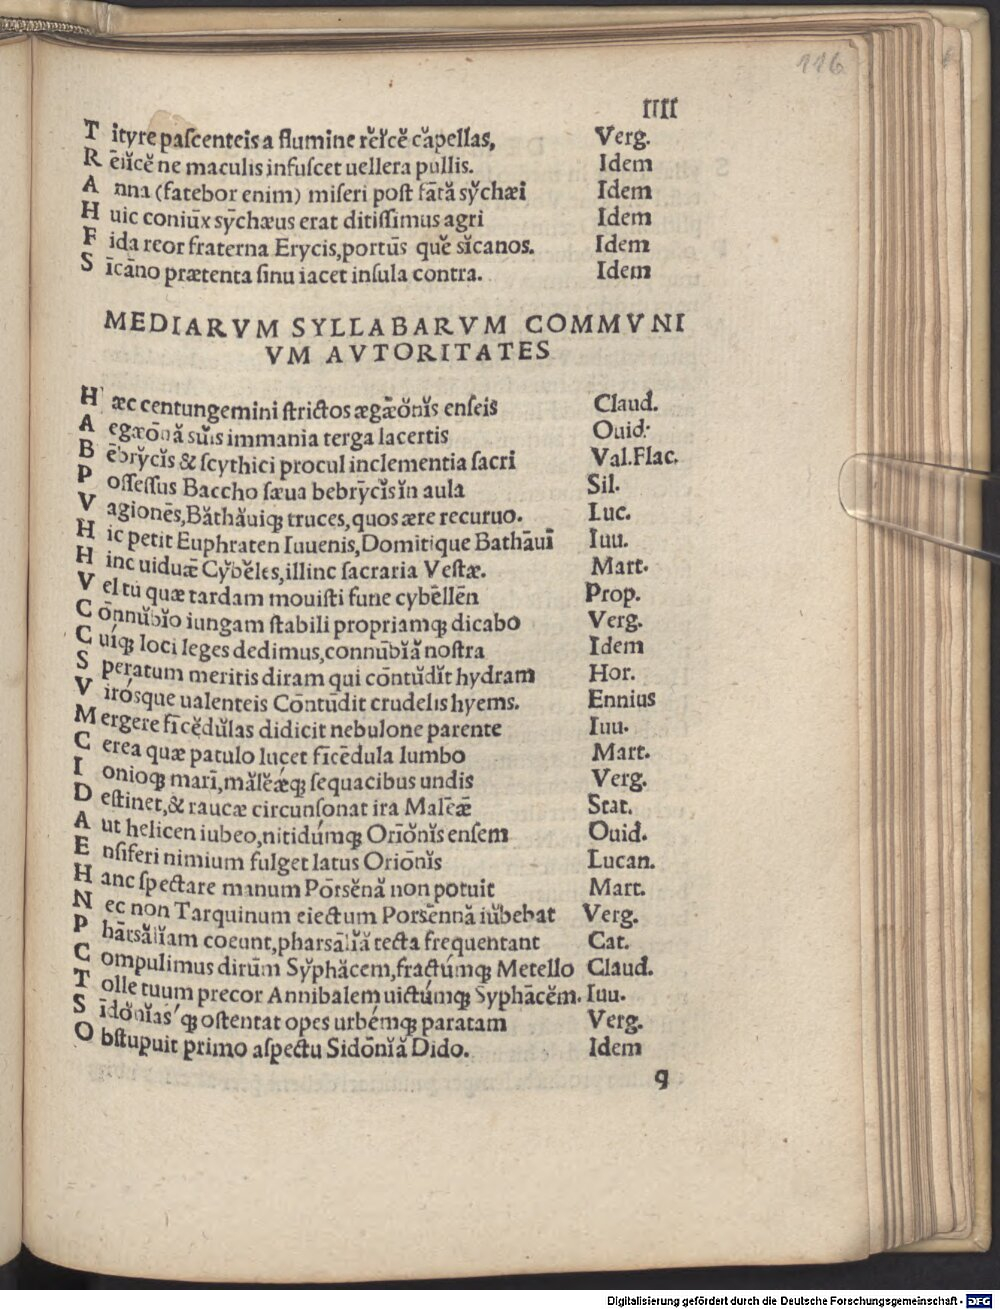 116
IIII
Tityre paſcenteis a flumine rē̆ĭcĕ căpellas, Verg.
Rēĭĭcĕ ne maculis infuſcet uellera pullis. Idem
Anna (fatebor enim) miſeri poſt fātă sy̆chæi Idem
Huic coniūx sȳchæus erat ditiſſimus agri Idem
Fida reor fraterna Erycis,portūs quĕ sĭcanos. Idem
Sīcăno prætenta ſinu iacet inſula contra. Idem
MEDIARVM SYLLABARVM COMMVNI
VM AVTORITATES
Hæc centungemini ſtrictos ægæŏnĭs enſeis Claud.
Aegæōnă sŭis immania terga lacertis Ouid:
Bēbry̆cĭs & ſcythici procul inclementia ſacri Val.Flac.
Poſſeſſus Baccho ſæua bebrȳcĭs in aula Sil.
Vagionēs,Băthăuiqꝫ truces,quos ære recuruo. Luc.
Hic petit Euphraten Iuuenis,Domitique Bathāuĭ Iuu.
Hinc uiduæ Cy̆bĕles,illinc ſacraria Veſtæ. Mart.
Vel tu quæ tardam mouiſti fune cybēllēn Prop.
Cōnnŭbĭo iungam ſtabili propriamqꝫ dicabo Verg.
Cuíqꝫ loci leges dedimus,connūbĭă noſtra Idem
Speratum meritis diram qui cōntŭdĭt hydram Hor.
Virósque ualenteis Cōntūdit crudelis hyems. Ennius
Mergere fīcĕdŭlas didicit nebulone parente Iuu.
Cerea quæ patulo lucet fīcēdula lumbo Mart.
Ionioqꝫ marī,mălĕǽqꝫ ſequacibus undis Verg.
Deſtinet,& raucæ circunſonat ira Malēæ Stat.
Aut helicen iubeo,nitidúmqꝫ Orīŏnĭs enſem Ouid.
Enſiferi nimium fulget latus Orionĭs Lucan.
Hanc ſpectare manum Pōrsĕnă non potuit Mart.
Nec non Tarquinum eiectum Porsēnnă iŭbebat Verg.
Phārsălĭam coeunt,pharsālĭă tecta frequentant Cat.
Compulimus dirūm Sy̆phăcem,fractúmqꝫ Metello Claud.
Tolle tuum precor Annibalem uictúmqꝫ Syphācĕm. Iuu.
Sīdŏnĭas'qꝫ oſtentat opes urbémqꝫ paratam Verg.
Obſtupuit primo aſpectu Sidōnĭă Dido. Idem
q
Digitalisierung gefördert durch die Deutsche Forschungsgemeinschaft - DFG